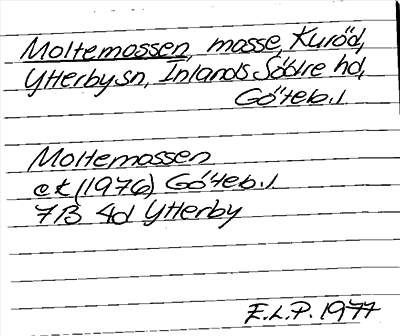 Moltemossen, mosse, Kuröd,
Ytterby sn, Inlands Södre hd,
Göteb. l
Moltemossen
ek (1976) Göteb. l
7B 4d Ytterby
E.L.P. 1977